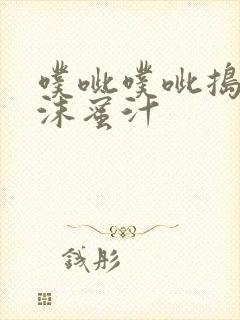 噗呲噗呲搗
沫蜜汁
钱彤